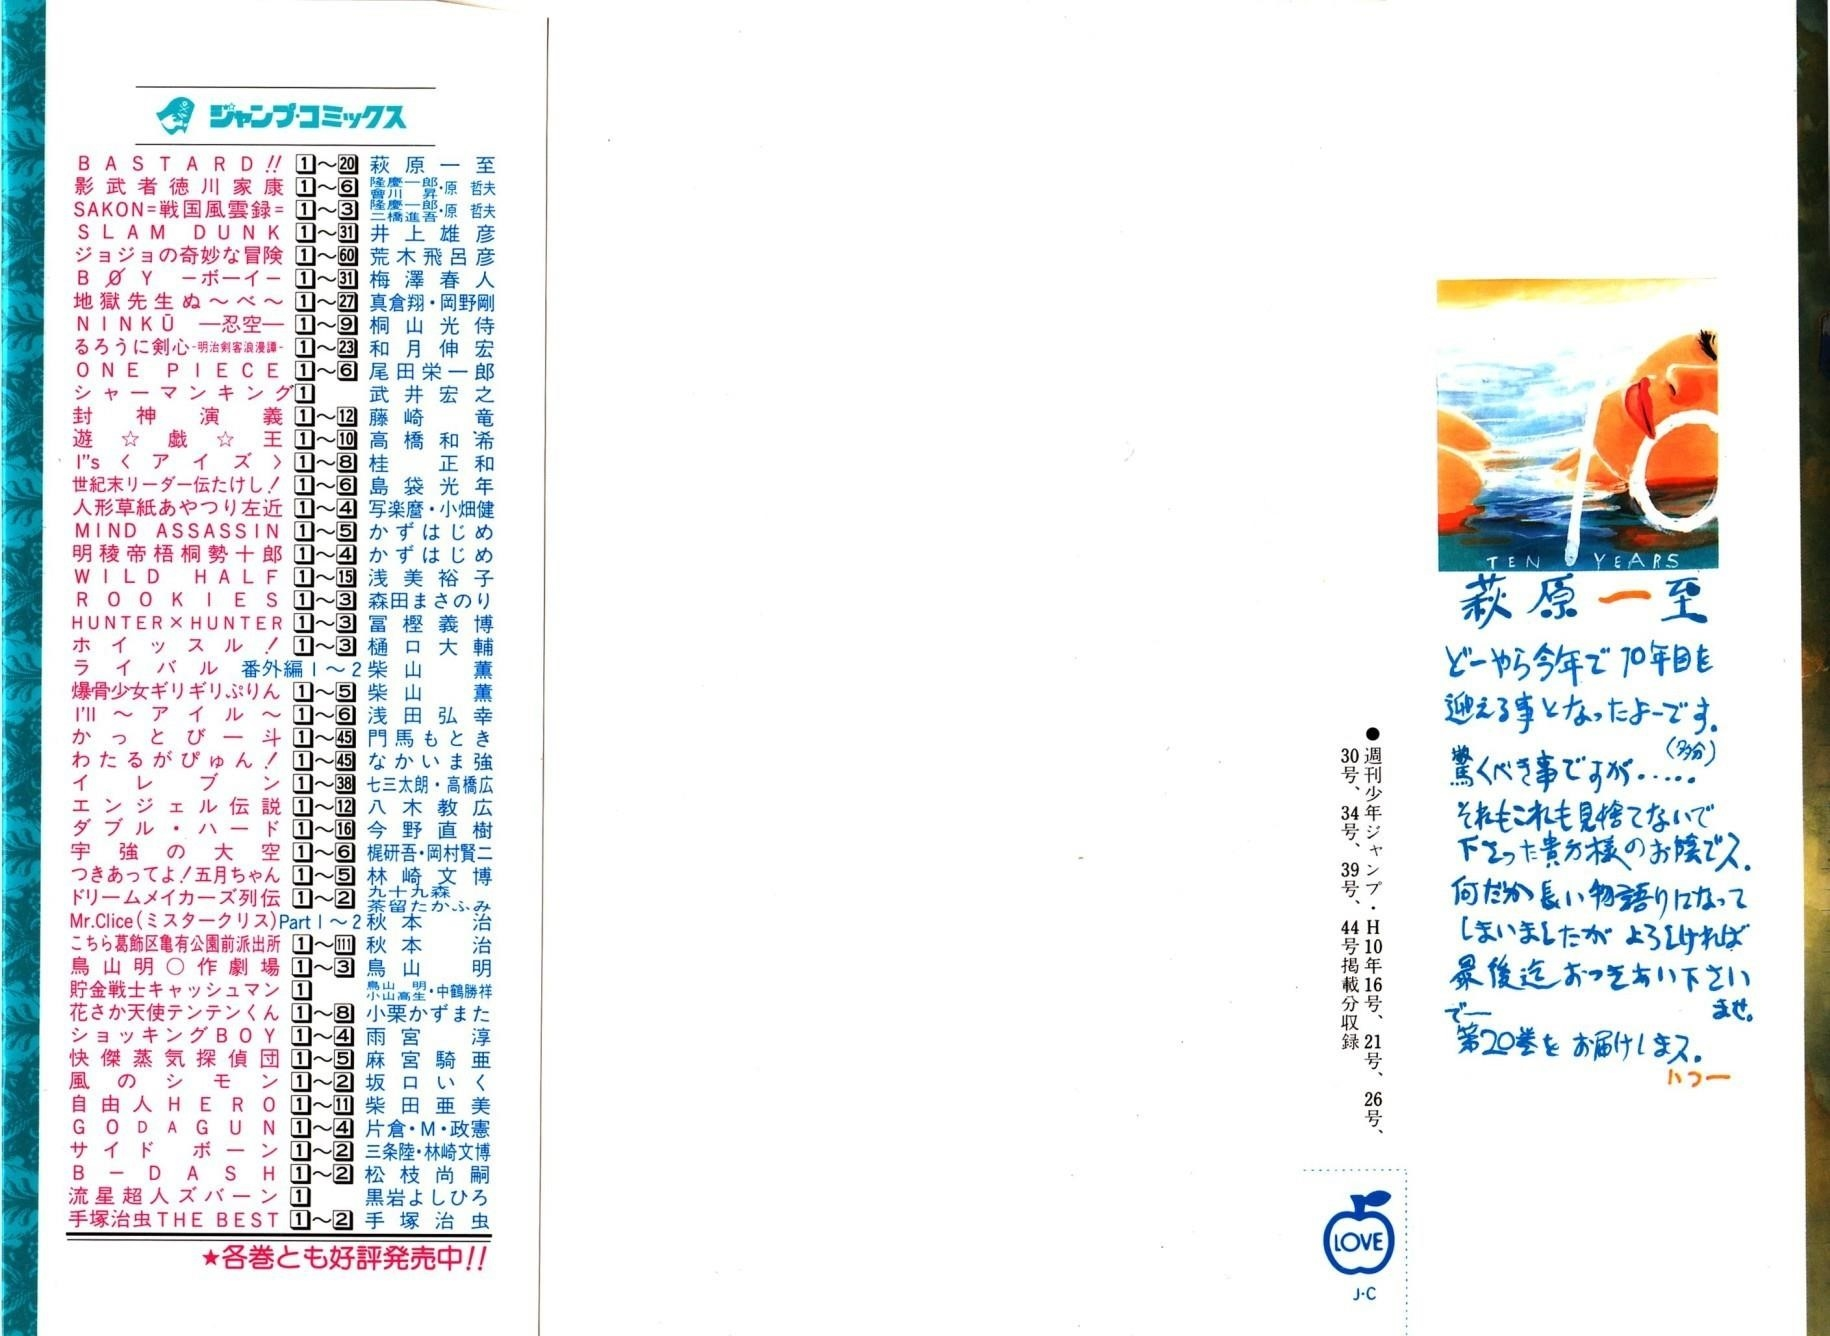 ジャンプ・コミックス
BASTARD!! 1～20 萩原一至
影武者徳川家康 1～6 隆慶一郎・會川昇・原哲夫
SAKON=戦国風雲録= 1～3 隆慶一郎・二橋進吾・原哲夫
SLAM DUNK 1～31 井上雄彦
ジョジョの奇妙な冒険 1～60 荒木飛呂彦
BØY －ボーイ－ 1～31 梅澤春人
地獄先生ぬ～べ～ 1～27 真倉翔・岡野剛
NINKŪ ―忍空― 1～9 桐山光侍
るろうに剣心-明治剣客浪漫譚- 1～23 和月伸宏
ONE PIECE 1～6 尾田栄一郎
シャーマンキング 1 武井宏之
封神演義 1～12 藤崎竜
遊☆戯☆王 1～10 高橋和希
I"s〈アイズ〉 1～8 桂正和
世紀末リーダー伝たけし! 1～6 島袋光年
人形草紙あやつり左近 1～4 写楽麿・小畑健
MIND ASSASSIN 1～5 かずはじめ
明稜帝梧桐勢十郎 1～4 かずはじめ
WILD HALF 1～15 浅美裕子
ROOKIES 1～3 森田まさのり
HUNTER×HUNTER 1～3 冨樫義博
ホイッスル! 1～3 樋口大輔
ライバル 番外編1～2 柴山薫
爆骨少女ギリギリぷりん 1～5 柴山薫
I'll ～アイル～ 1～6 浅田弘幸
かっとび一斗 1～45 門馬もとき
わたるがぴゅん! 1～45 なかいま強
イレブン 1～38 七三太朗・高橋広
エンジェル伝説 1～12 八木教広
ダブル・ハード 1～16 今野直樹
宇強の大空 1～6 梶研吾・岡村賢二
つきあってよ!五月ちゃん 1～5 林崎文博
ドリームメイカーズ列伝 1～2 九十九森 茶留たかふみ
Mr.Clice(ミスタークリス) Part 1～2 秋本治
こちら葛飾区亀有公園前派出所 1～111 秋本治
鳥山明○作劇場 1～3 鳥山明
貯金戦士キャッシュマン 1 鳥山明 小山高生・中鶴勝祥
花さか天使テンテンくん 1～8 小栗かずまた
ショッキングBOY 1～4 雨宮淳
快傑蒸気探偵団 1～5 麻宮騎亜
風のシモン 1～2 坂口いく
自由人HERO 1～11 柴田亜美
GODAGUN 1～4 片倉・M・政憲
サイドボーン 1～2 三条陸・林崎文博
B－DASH 1～2 松枝尚嗣
流星超人ズバーン 1 黒岩よしひろ
手塚治虫THE BEST 1～2 手塚治虫
★各巻とも好評発売中!!
●週刊少年ジャンプ・H10年16号、21号、26号、
30号、34号、39号、44号掲載分収録
LOVE
J・C
10
TEN YEARS
萩原一至
どーやら今年で10年目を
迎える事となったよーです。
(多分)
驚くべき事ですが・・・・・
それもこれも見捨てないで
下さった貴方様のお陰でス。
何だか長い物語りになって
しまいましたがよろしければ
最後迄おつきあい下さい
ませ。
でー
第20巻をお届けしまス。
ハフー